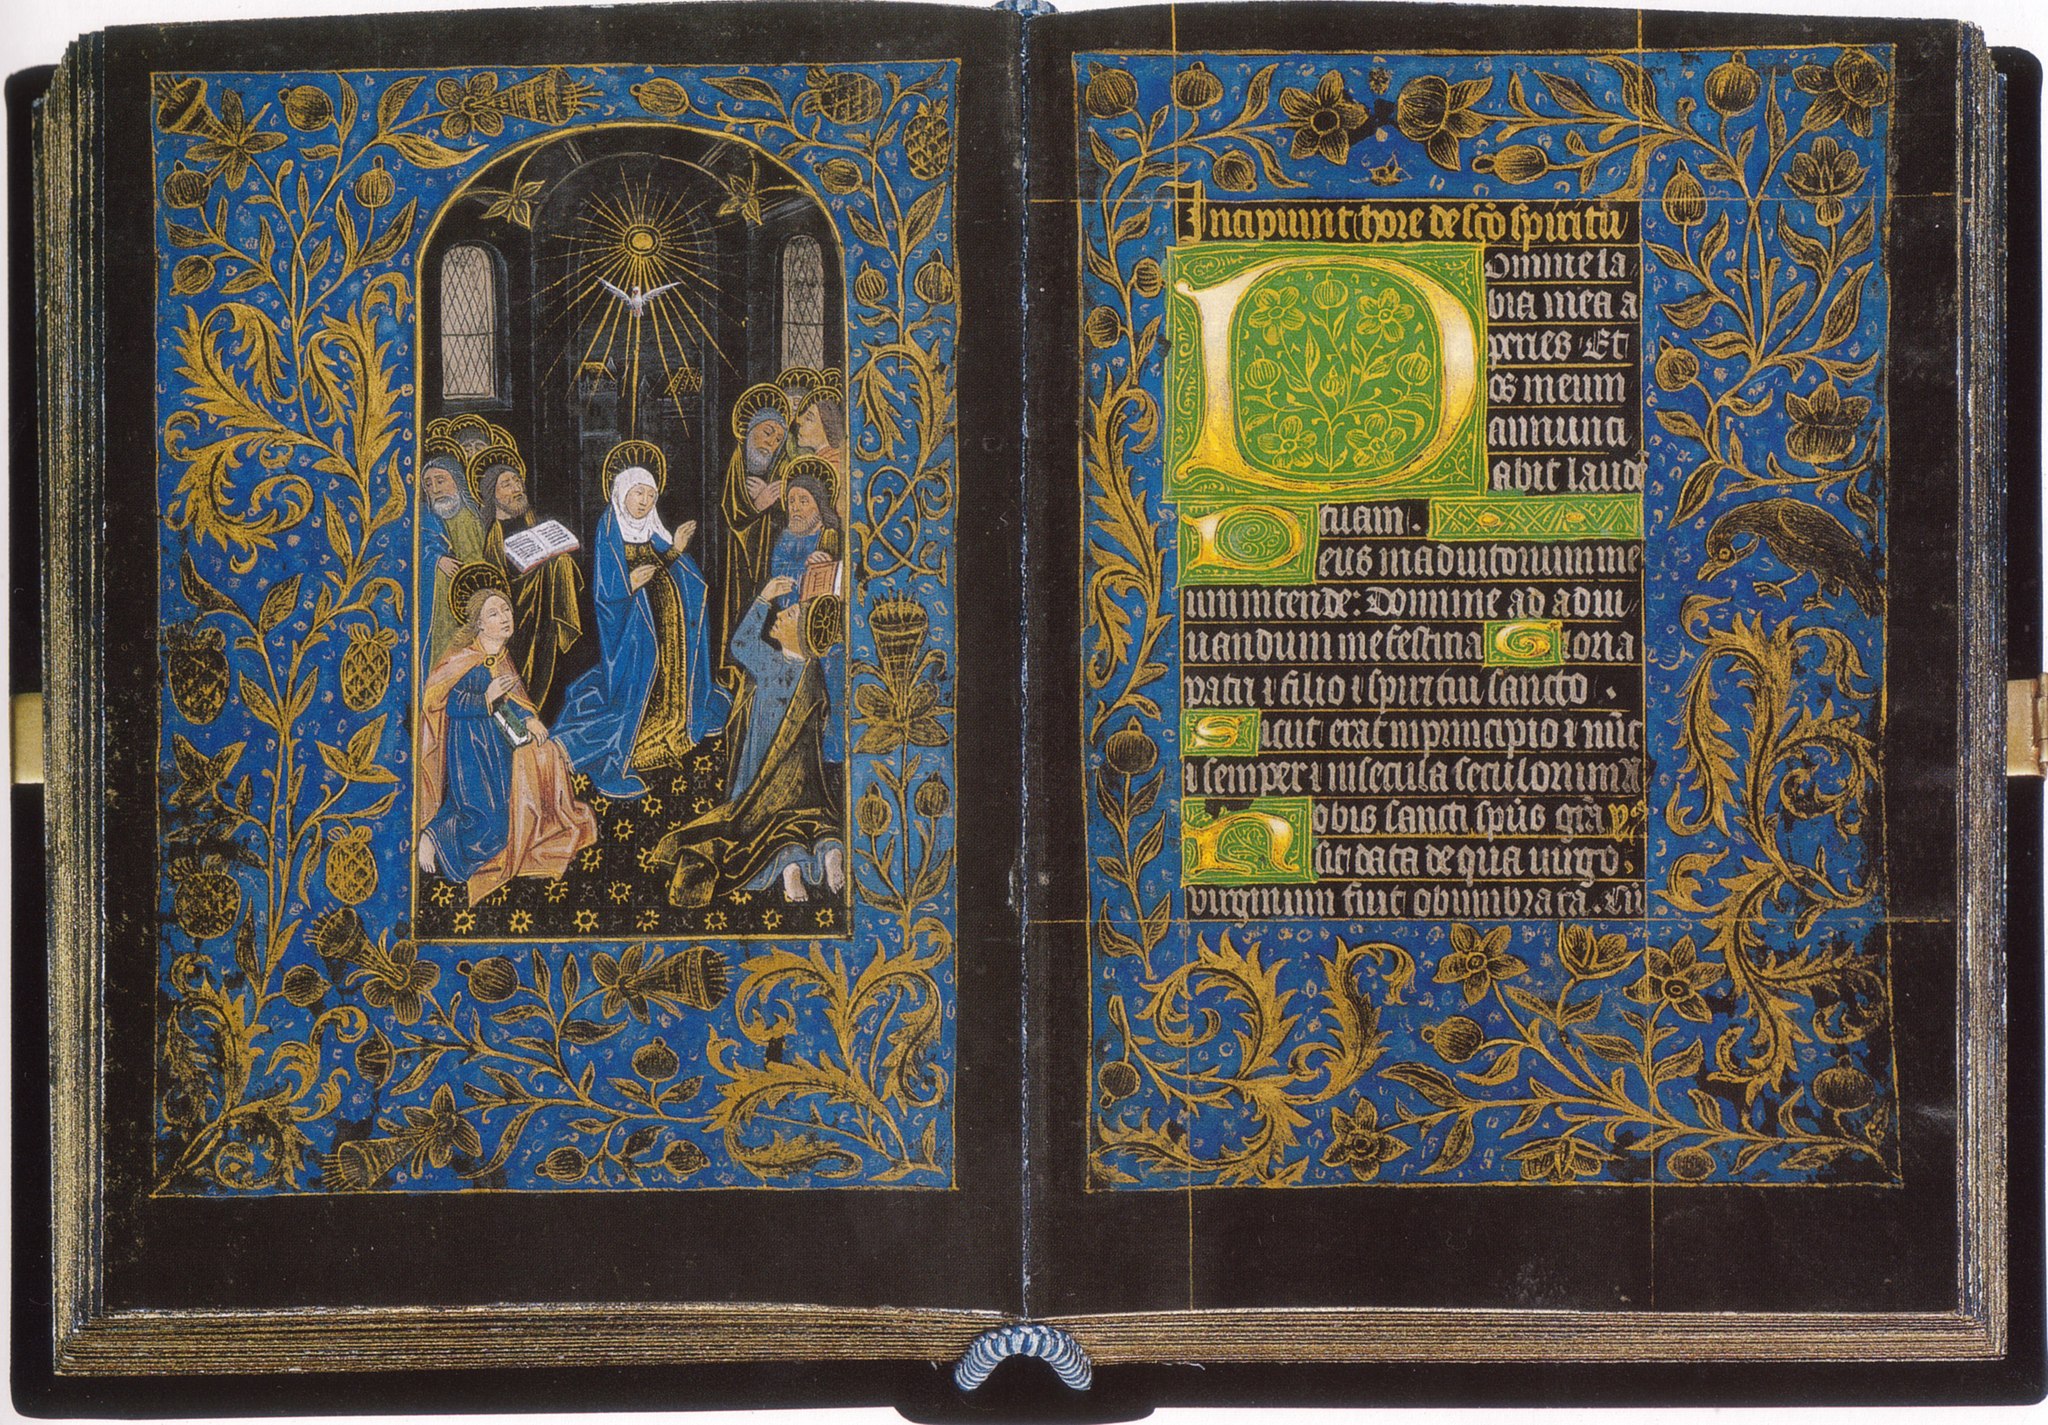 Incipiunt hore de sco spiritu
Domine la
bia mea a
peries Et
os meum
annunci
abit laude
tuam.
Deus in adiutorium me
um intende: Domine ad adiu
uandum me festina Gloria
patri ⁊ filio ⁊ spiritui sancto.
Sicut erat in principio ⁊ nūc
⁊ semper ⁊ in secula seculorum A
Nobis sancti spūs grā ys
sit data de qua uirgo
virginum fuit obumbrata. Cū